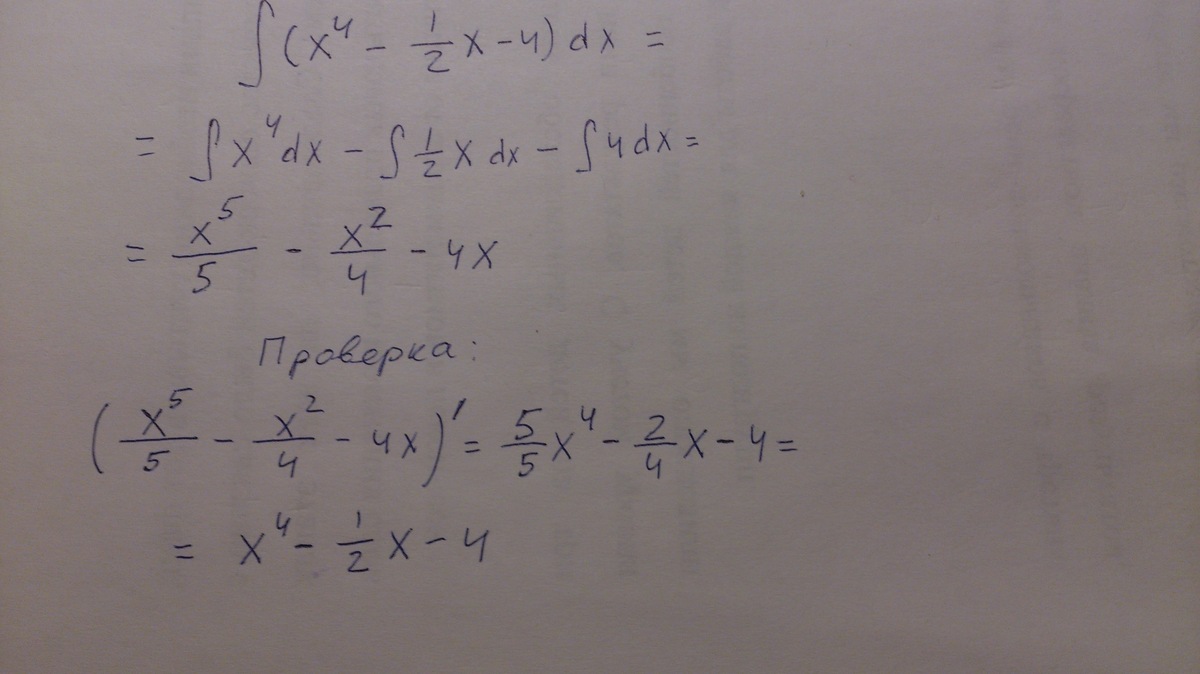 ∫(x⁴ − 1/2 x − 4) dx =
= ∫x⁴dx − ∫1/2 x dx − ∫4dx =
= x⁵/5 − x²/4 − 4x
Проверка:
(x⁵/5 − x²/4 − 4x)′ = 5/5 x⁴ − 2/4 x − 4 =
= x⁴ − 1/2 x − 4